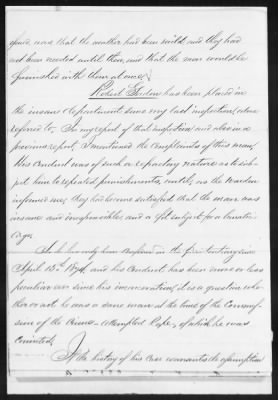 plied, was that the weather had been mild and they had
not been needed until then, and that the men would be
furnished with them at once.
Robert has been placed in
the insane department since my last inspection, above
referred to. In my report of that inspection, and also in a
previous report, I mentioned the complaints of this man.
His conduct was of such a refractory nature as to sub-
ject him to repeated punishments, until, as the Warden
informed me, they had become satisfied that the man was
insane and irresponsible, and a fit subject for a lunatic
asylum.
As he has only been confined in the penitentiary since
April 15th 1874, and his conduct has been more or less
peculiar ever since his incarceration, it is a question whe-
ther or not he was a sane man at the time of the commis-
sion of the crime - attempted rape, of which he was
convicted.
If the history of his case warrants the assumption